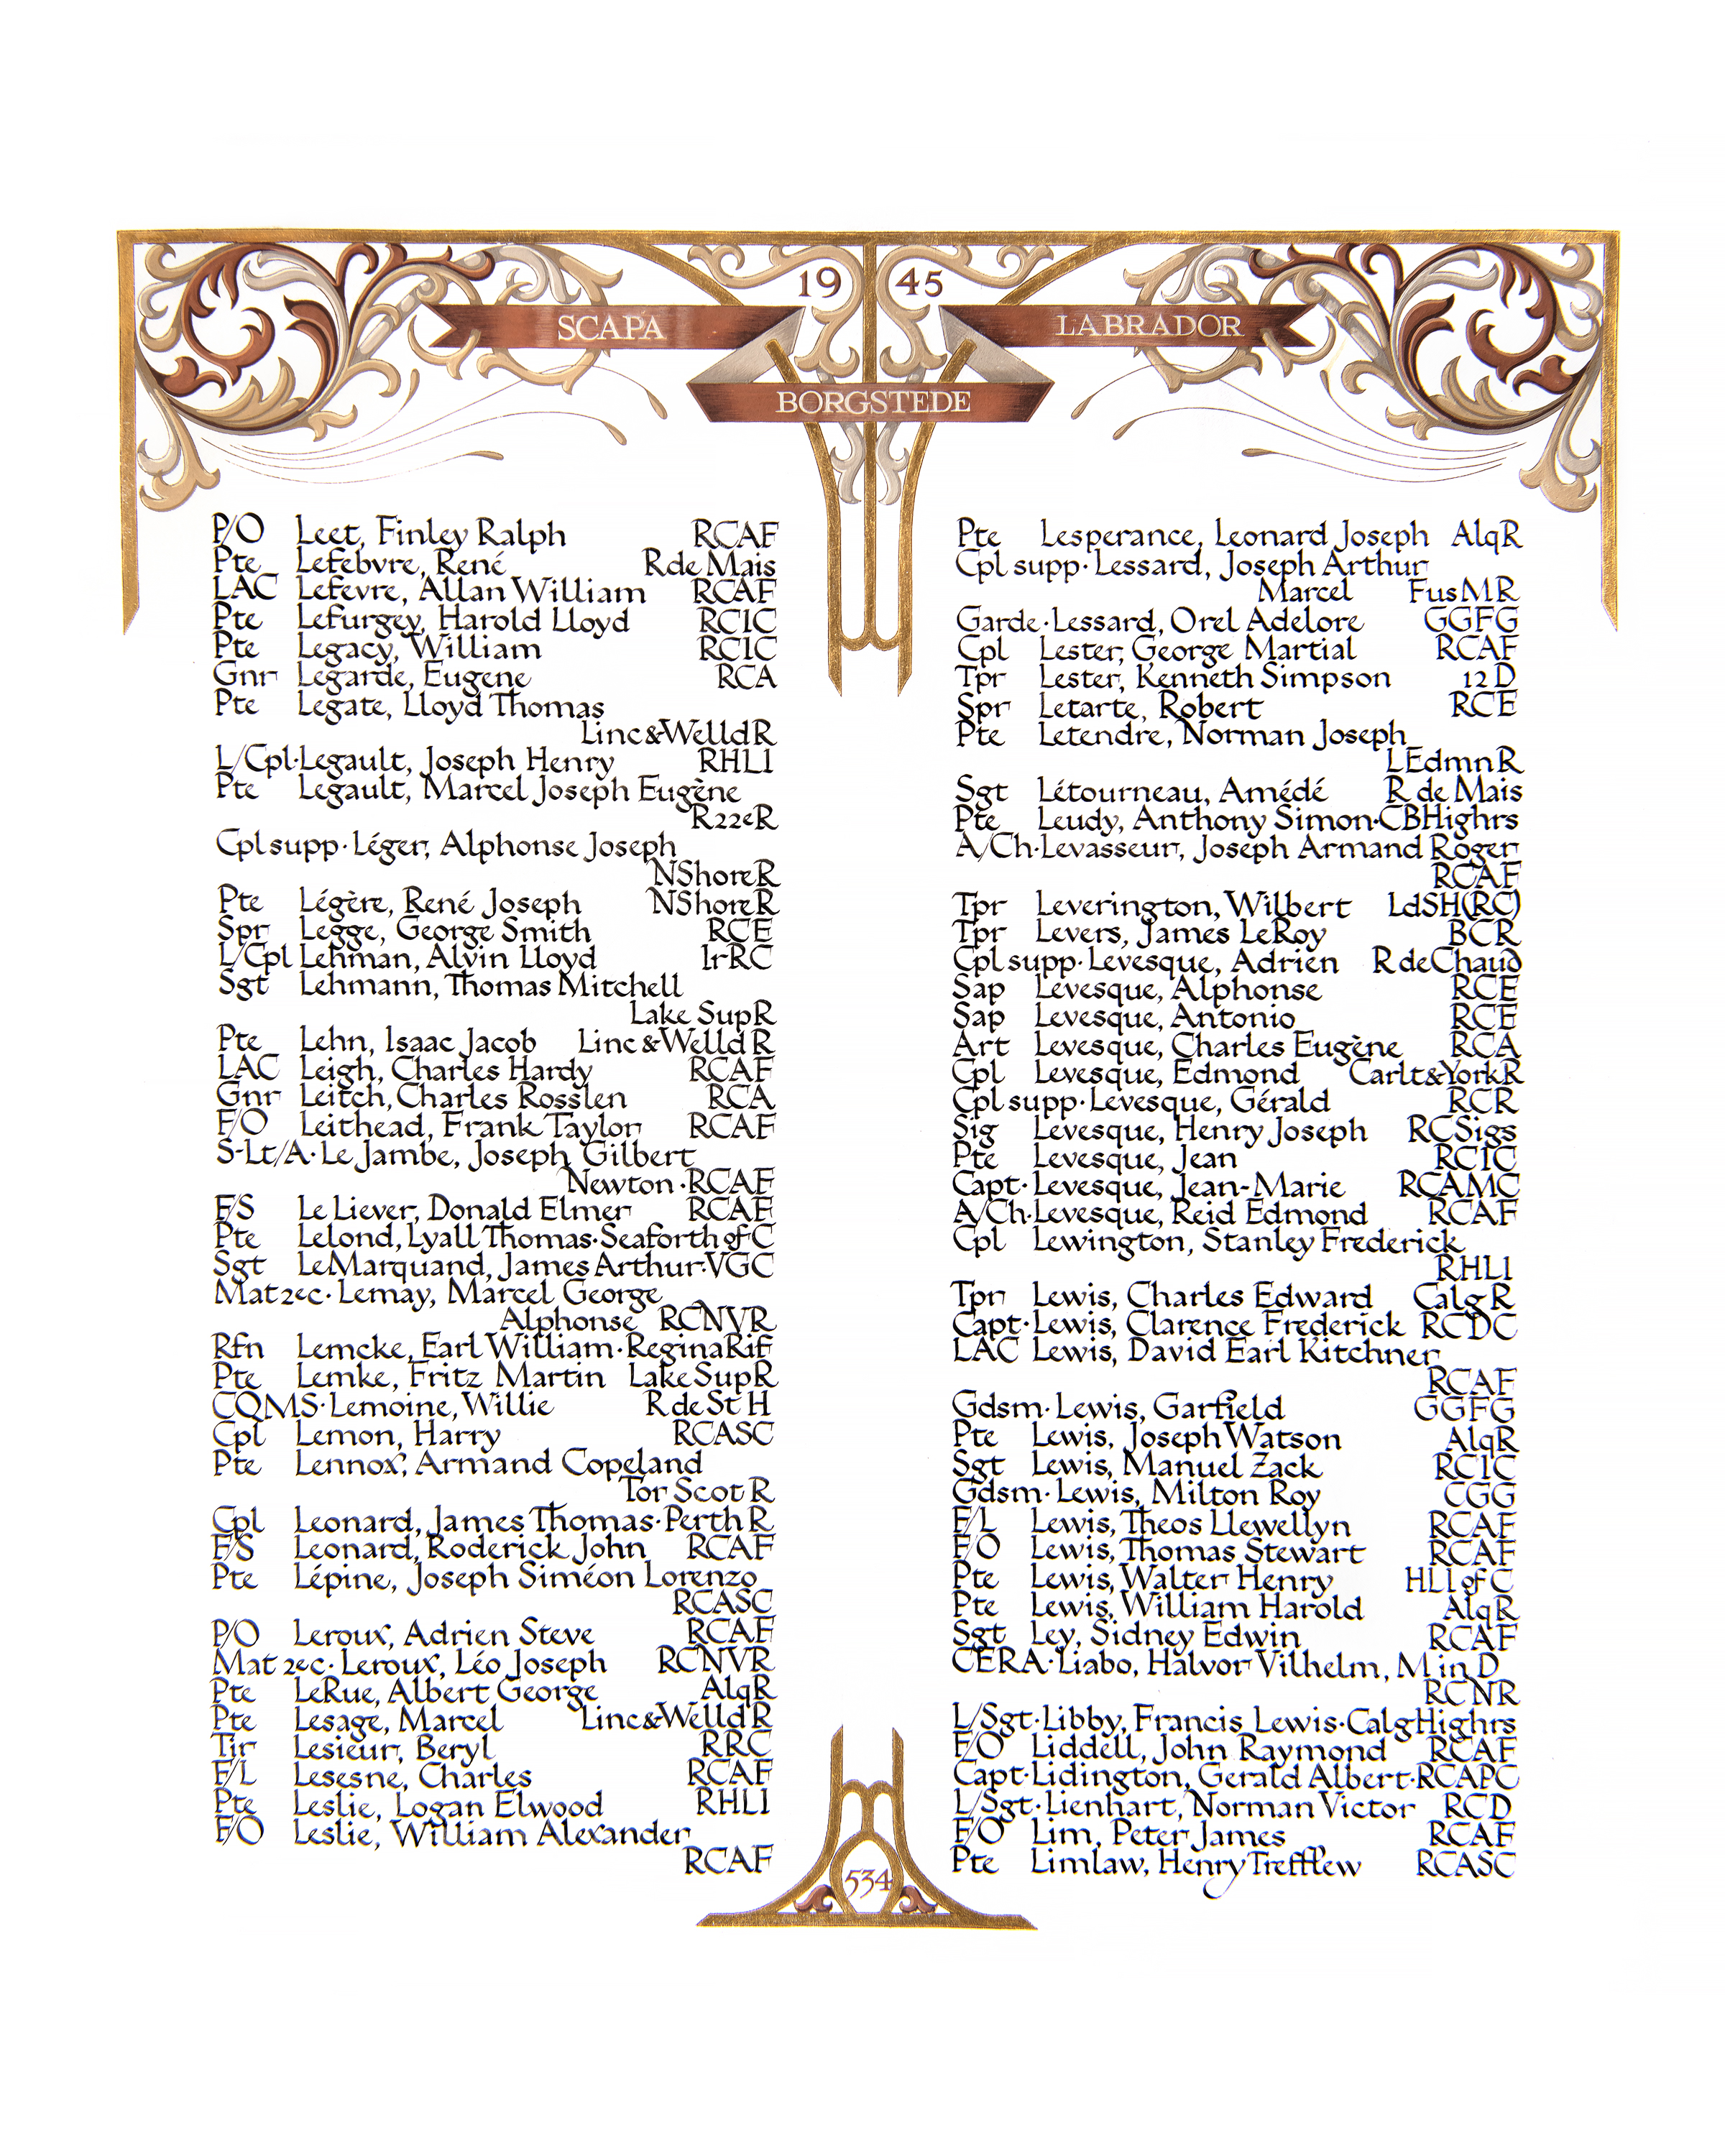 19 45
SCAPA
LABRADOR
BORGSTEDE
P/O Leet, Finley Ralph RCAF
Pte Lefebvre, René R de Mais
LAC Lefevre, Allan William RCAF
Pte Lefurgey, Harold Lloyd RCIC
Pte Legacy, William RCIC
Gnr Legarde, Eugene RCA
Pte Legate, Lloyd Thomas
Linc&WelldR
L/Cpl·Legault, Joseph Henry RHLI
Pte Legault, Marcel Joseph Eugène
R22eR
Cpl supp·Léger, Alphonse Joseph
NShoreR
Pte Légère, René Joseph NShoreR
Spr Legge, George Smith RCE
L/Cpl Lehman, Alvin Lloyd IrRC
Sgt Lehmann, Thomas Mitchell
Lake SupR
Pte Lehn, Isaac Jacob Linc&WelldR
LAC Leigh, Charles Hardy RCAF
Gnr Leitch, Charles Rosslen RCA
F/O Leithead, Frank Taylor RCAF
S-Lt/A·Le Jambe, Joseph Gilbert
Newton·RCAF
F/S Le Liever, Donald Elmer RCAF
Pte Lelond, Lyall Thomas·Seaforth of C
Sgt LeMarquand, James Arthur·VGC
Mat 2ec·Lemay, Marcel George
Alphonse RCNVR
Rfn Lemcke, Earl William·ReginaRif
Pte Lemke, Fritz Martin LakeSupR
CQMS·Lemoine, Willie R de St H
Cpl Lemon, Harry RCASC
Pte Lennox, Armand Copeland
Tor Scot R
Cpl Leonard, James Thomas·Perth R
F/S Leonard, Roderick John RCAF
Pte Lépine, Joseph Siméon Lorenzo
RCASC
P/O Leroux, Adrien Steve RCAF
Mat 2ec·Leroux, Léo Joseph RCNVR
Pte LeRue, Albert George AlqR
Pte Lesage, Marcel Linc&WelldR
Tir Lesieur, Beryl RRC
F/L Lesesne, Charles RCAF
Pte Leslie, Logan Elwood RHLI
F/O Leslie, William Alexander
RCAF
Pte Lesperance, Leonard Joseph AlqR
Cpl supp·Lessard, Joseph Arthur
Marcel FusMR
Garde·Lessard, Orel Adelore GGFG
Cpl Lester, George Martial RCAF
Tpr Lester, Kenneth Simpson 12 D
Spr Letarte, Robert RCE
Pte Letendre, Norman Joseph
LEdmnR
Sgt Létourneau, Amédé R de Mais
Pte Leudy, Anthony Simon·CBHighrs
A/Ch·Levasseur, Joseph Armand Roger
RCAF
Tpr Leverington, Wilbert LdSH(RC)
Tpr Levers, James LeRoy BCR
Cpl supp·Levesque, Adrien R de Chaud
Sap Levesque, Alphonse RCE
Sap Levesque, Antonio RCE
Art Levesque, Charles Eugène RCA
Cpl Levesque, Edmond Carlt&YorkR
Cpl supp·Levesque, Gérald RCR
Sig Levesque, Henry Joseph RCSigs
Pte Levesque, Jean RCIC
Capt·Levesque, Jean-Marie RCAMC
A/Ch·Levesque, Reid Edmond RCAF
Cpl Lewington, Stanley Frederick
RHLI
Tpr Lewis, Charles Edward Calg R
Capt·Lewis, Clarence Frederick RCDC
LAC Lewis, David Earl Kitchner
RCAF
Gdsm·Lewis, Garfield GGFG
Pte Lewis, Joseph Watson AlqR
Sgt Lewis, Manuel Zack RCIC
Gdsm·Lewis, Milton Roy CGG
F/L Lewis, Theos Llewellyn RCAF
F/O Lewis, Thomas Stewart RCAF
Pte Lewis, Walter Henry HLI of C
Pte Lewis, William Harold AlqR
Sgt Ley, Sidney Edwin RCAF
CERA·Liabo, Halvor Vilhelm, M in D
RCNR
L/Sgt·Libby, Francis Lewis·CalgHighrs
F/O Liddell, John Raymond RCAF
Capt·Lidington, Gerald Albert·RCAPC
L/Sgt·Lienhart, Norman Victor RCD
F/O Lim, Peter James RCAF
Pte Limlaw, Henry Trefflew RCASC
534